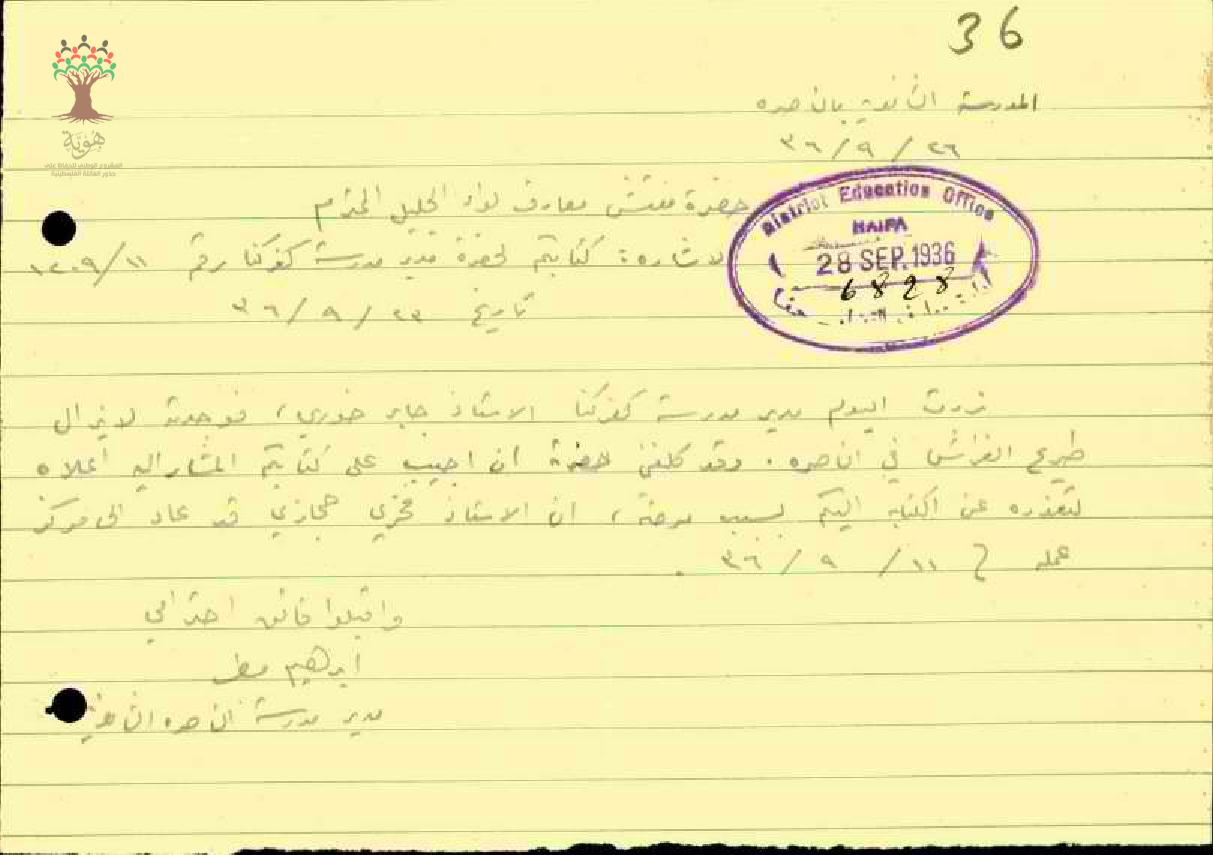 36
هُويّة
المشروع الوطني للحفاظ على
جذور العائلة الفلسطينية
المدرسة الثانويه بالناصره
٢٦ / ٩ / ٣٦
District Education Office
HAIFA
28 SEP. 1936
6828
حضرة مفتش معارف لواء الجليل المحترم
لاشاره : كتابكم لحضرة مدير مدرسة كفركنا رقم ١١/ ١٢٠٩
تاريخ ٢٣ / ٩ / ٣٦
زرت اليوم مدير مدرسة كفركنا الاستاذ جابر خوري ، فوجدته لا يزال
طريح الفراش في الناصره . وقد كلفني حضرته ان اجيب على كتابكم المشار اليه اعلاه
لتعذره عن الكتابه اليكم بسبب مرضه ، ان الاستاذ فخري حجازي قد عاد الى مركز
عمله في ١١ / ٩ / ٣٦ .
واقبلوا فائق احترامي
ابرهيم مطر
مدير مدرسة الناصره الثانويه